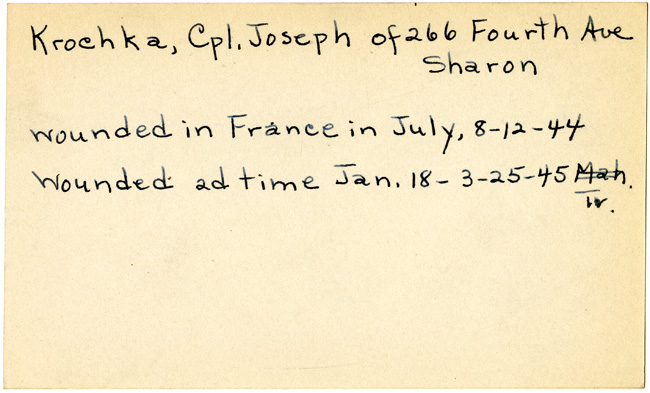 Krochka, Cpl. Joseph of 266 Fourth Ave
Sharon
wounded in France in July, 8-12-44
Wounded 2d time Jan. 18 - 3-25-45 Mah.
Tr.